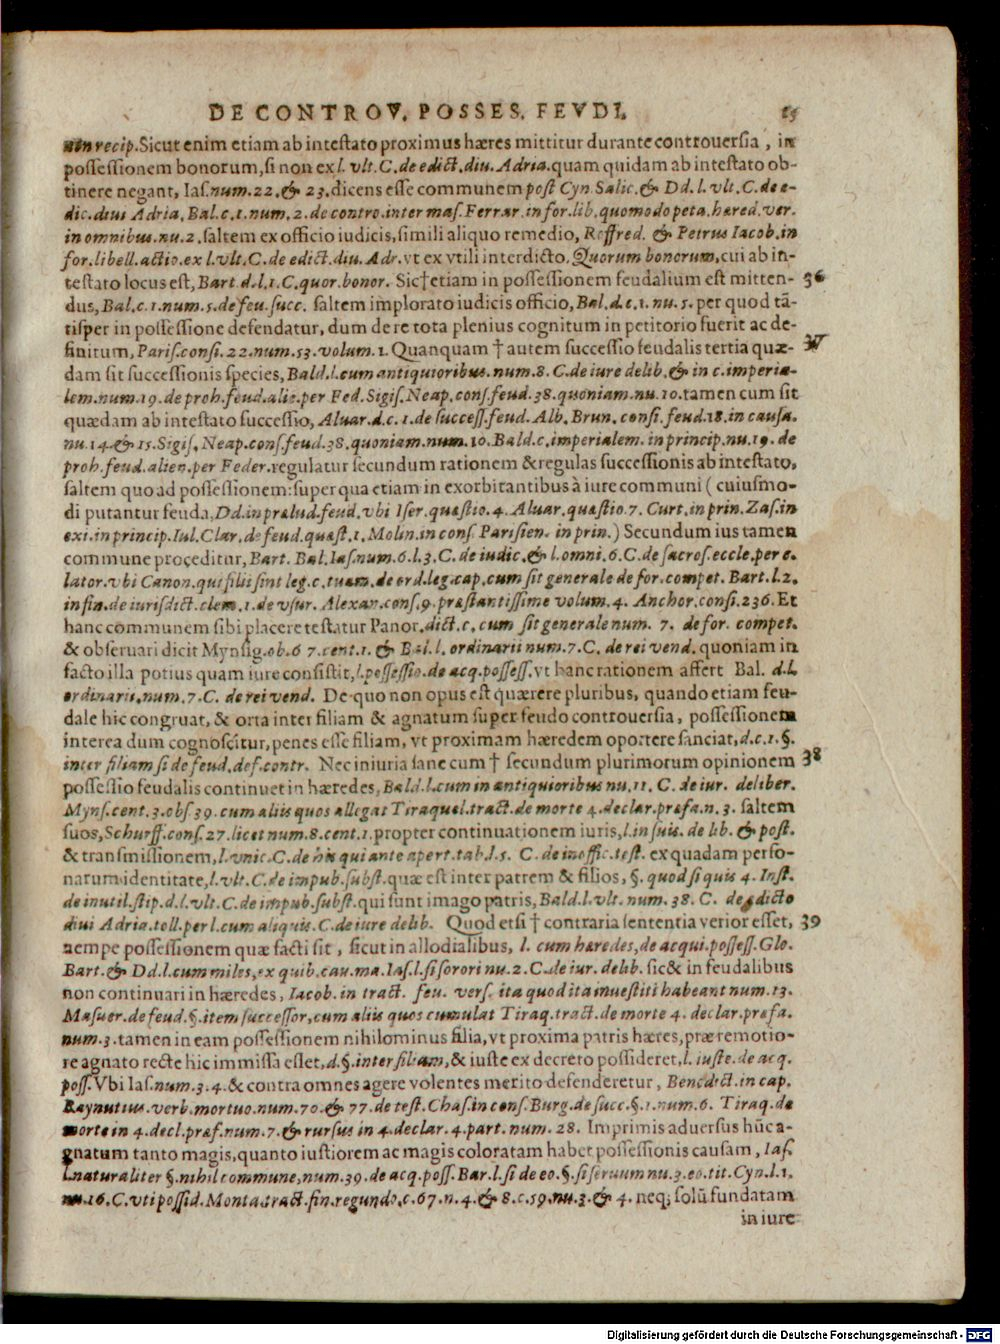 DE CONTROV. POSSES. FEVDI. 15
in recip. Sicut enim etiam ab intestato proximus hæres mittitur durante controuersia, in
possessionem bonorum, si non ex l. vlt. C. de edict. diu. Adria. quam quidam ab intestato ob-
tinere negant, Ias. num. 22. & 23. dicens esse communem post Cyn. Salic. & Dd. l. vlt. C. de e-
dic. diui Adria. Bal. c. 1. num. 2. de contro. inter mas. Ferrar. in for. lib. quomodo peta. hæred. ver.
in omnibus. nu. 2. saltem ex officio iudicis, simili aliquo remedio, Roffred. & Petrus Iacob. in
for. libell. actio. ex l. vlt. C. de edict. diu. Adr. vt ex vtili interdicto, Quorum bonorum, cui ab in-
testato locus est, Bart. d. l. 1. C. quor. bonor. Sic † etiam in possessionem feudalium est mitten- 36
dus, Bal. c. 1. num. 5. de feu. succ. saltem implorato iudicis officio, Bal. d. c. 1. nu. 5. per quod tā-
tisper in possessione defendatur, dum de re tota plenius cognitum in petitorio fuerit ac de-
finitum, Paris. consi. 22. num. 53. volum. 1. Quanquam † autem successio feudalis tertia quæ- 37
dam sit successionis species, Bald. l. cum antiquioribus. num. 8. C. de iure delib. & in c. imperia-
lem. num. 19. de proh. feud. alie. per Fed. Sigis. Neap. cons. feud. 38. quoniam. nu. 10. tamen cum sit
quædam ab intestato successio, Aluar. d. c. 1. de success. feud. Alb. Brun. consi. feud. 18. in causa.
nu. 14. & 15. Sigis. Neap. cons. feud. 38. quoniam. num. 10. Bald. c. imperialem. in princip. nu. 19. de
proh. feud. alien. per Feder. regulatur secundum rationem & regulas successionis ab intestato,
saltem quo ad possessionem: super qua etiam in exorbitantibus à iure communi (cuiusmo-
di putantur feuda, Dd. in prælud. feud. vbi Iser. quæstio. 4. Aluar. quæstio. 7. Curt. in prin. Zas. in
exi. in princip. Iul. Clar. de feud. quæst. 1. Molin. in cons. Parisien. in prin.) Secundum ius tamen
commune proceditur, Bart. Bal. Ias. num. 6. l. 3. C. de iudic. & l. omni. 6. C. de sacros. eccle. per e.
lator. vbi Canon. qui filii sint leg. c. tuam. de ord. leg. cap. cum sit generale de for. compet. Bart. l. 2.
in fin. de iurisdict. clem. 1. de vsur. Alexan. cons. 9. præstantissime volum. 4. Anchor. consi. 236. Et
hanc communem sibi placere testatur Panor. dict. c. cum sit generale num. 7. de for. compet.
& obseruari dicit Mynsig. ob. 67. cent. 1. & Bal. l. ordinarii num. 7. C. de rei vend. quoniam in
facto illa potius quam iure consistit, l. possessio. de acq. possess. vt hanc rationem affert Bal. d. l.
ordinarii. num. 7. C. de rei vend. De quo non opus est quærere pluribus, quando etiam feu-
dale hic congruat, & orta inter filiam & agnatum super feudo controuersia, possessionem
interea dum cognoscitur, penes esse filiam, vt proximam hæredem oportere sanciat, d. c. 1. §.
inter filiam si de feud. def. contr. Nec iniuria sane cum † secundum plurimorum opinionem 38
possessio feudalis continuet in hæredes, Bald. l. cum in antiquioribus nu. 11. C. de iur. deliber.
Myns. cent. 3. obs. 39. cum aliis quos allegat Tiraquel. tract. de morte 4. declar. præfa. n. 3. saltem
suos, Schurff. cons. 27. licet num. 8. cent. 1. propter continuationem iuris, l. in suis. de lib. & post.
& transmissionem, l. vnic. C. de his qui ante apert. tab. l. 5. C. de inoffic. test. ex quadam perso-
narum identitate, l. vlt. C. de impub. subst. quæ est inter patrem & filios, §. quod si quis 4. Inst.
de inutil. stip. d. l. vlt. C. de impub. subst. qui sunt imago patris, Bald. l. vlt. num. 38. C. de edicto
diui Adria. toll. per l. cum aliquis. C. de iure delib. Quod etsi † contraria sententia verior esset, 39
nempe possessionem quæ facti sit, sicut in allodialibus, l. cum hæredes, de acqui. possess. Glo.
Bart. & Dd. l. cum miles, ex quib. cau. ma. Ias. l. si sorori nu. 2. C. de iur. delib. sic & in feudalibus
non continuari in hæredes, Iacob. in tract. feu. vers. ita quod ita inuestiti habeant num. 13.
Masuer. de feud. §. item successor, cum aliis quos cumulat Tiraq. tract. de morte 4. declar. præfa.
num. 3. tamen in eam possessionem nihilominus filia, vt proxima patris hæres, præ remotio-
re agnato recte hic immissa esset, d. §. inter filiam, & iuste ex decreto possideret. l. iuste. de acq.
poss. Vbi Ias. num. 3. 4. & contra omnes agere volentes merito defenderetur, Benedict. in cap.
Raynutius. verb. mortuo. num. 70. & 77. de test. Chas. in cons. Burg. de succ. §. 1. num. 6. Tiraq. de
morte in 4. decl. præf. num. 7. & rursus in 4. declar. 4. part. num. 28. Imprimis aduersus hūc a-
gnatum tanto magis, quanto iustiorem ac magis coloratam habet possessionis causam, Ias.
l. naturaliter §. nihil commune, num. 39. de acq. poss. Bar. l. si de eo. §. si seruum nu. 3. eo. tit. Cyn. l. 1.
nu. 16. C. vti possid. Monta. tract. fin. regundo. c. 67. n. 4. & 8. c. 59. nu. 3. & 4. neq; solū fundatam
in iure
Digitalisierung gefördert durch die Deutsche Forschungsgemeinschaft - DFG